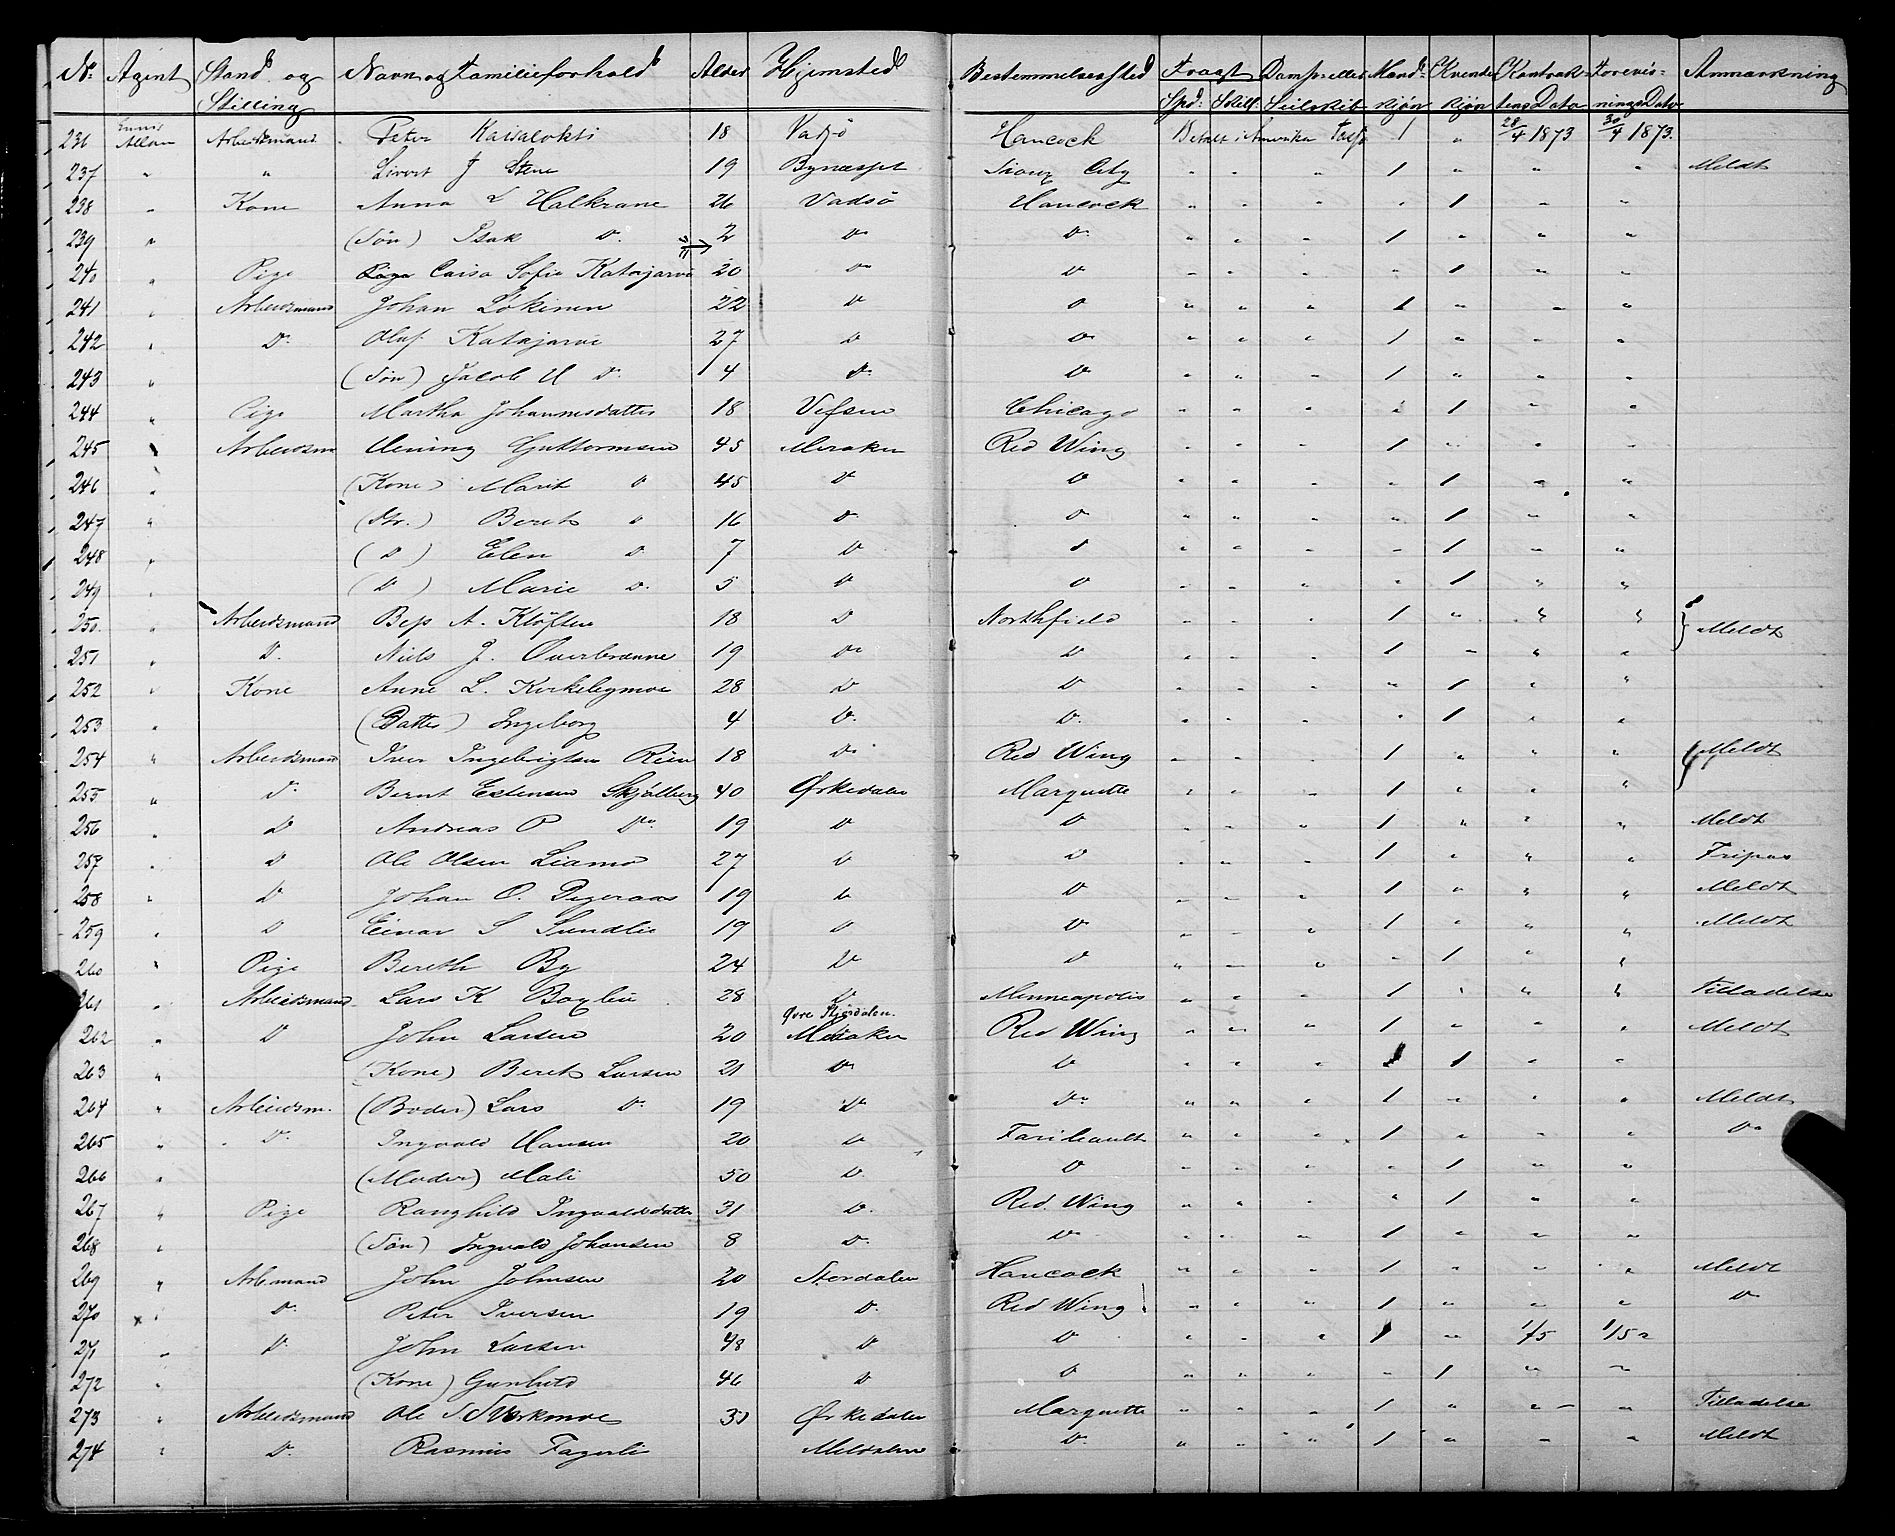 No. Agent Stand og Stilling Navn og Familieforhold Alder Hjemsted Bestemmelsessted Fragt Spd: Skill. Dampr eller Seilskib Mandkjøn Kvindekjøn Kontraktens Dato Forevisnings Dato Anmærkning
236 Allan Arbeidsmand Peter 18 Vadsø Hancock Betalt i Amerika 1 " 28/4 1873 30/4 1873.
237 " " Sivert J Stene 19 Bynæsset Sioux City " " " 1 " " " Meldt
238 " Kone Anna L Halkrane 26 Vadsö Hancock " " " " 1 " "
239 " (Søn) Isak Do. 2 Do Do. " " " 1 " " "
240 " Pige Caisa Sofie Katajarvi 20 Do Do " " " " 1 " "
241 " Arbeidsmand Johan Lökinen 22 Do Do " " " 1 " " "
242 " Do. Oluf Katajarvi 27 Do Do " " " 1 " " "
243 " (Søn) Jacob U Do. 4 Do. Do " " " 1 " " "
244 " Pige Martha Johannesdatter 18 Vefsen Chicago " " " " 1 " "
245 " Arbeidsm Hening Guttormsen 45 Meraker Red Wing " " " 1 " " "
246 " (Kone) Marit Do 45 Do Do " " " " 1 " "
247 " (Dtr.) Beret Do 16 Do. Do " " " " 1 " "
248 " (Do) Elen Do. 7 Do Do " " " " 1 " "
249 " (Do) Marie Do. 5 Do Do " " " " 1 " "
250. " Arbeidsmand Beps A. Kløften 18 Do Northfield " " " 1 " " " Meldt
251 " Do. Niels J. Overbrænne 19 Do Do " " " 1 " " "
252 " Kone Anne L. Kirkebymoe 28 Do Do " " " " 1 " "
253 " (Datter) Ingeborg 4 Do. Do. " " " " 1 " "
254 " Arbeidsmand Iver Ingebrigtsen 18 Do Red Wing " " " 1 " " " Meldt
255 " Do. Bernt Estensen Skjølberg 40 Ørkedalen Marquette " " " 1 " " "
256 " Do Andreas P Do. 19 Do Do " " " 1 " " " Meldt
257 " Do Ole Olsen Liamo 27 Do Do " " " 1 " " " Fripas
258 " Do Johan O. Digeraas 19 Do Do " " " 1 " " " Meldt
259 " Do Einar S Sundlie 19 Do Do " " " 1 " " " Meldt
260 " Pige Bereth By 24 Do Do " " " " 1 " "
261 " Arbeidsmand Lars K 28 Do Minneapolis " " " 1 " " " Tilladelse
262 " Do John Larsen 20 Øvre Stjørdalen. Meraker Red Wing " " " 1 " " " Meldt
263 " (Kone) Beret Larsen 21 Do Do " " " 1 " "
264 " Arbeidsm. (Broder) Lars Do. 19 Do Do " " " 1 " " " Meldt
265 " Do. Ingvald Hansen 20 Do Faribault " " " 1 " " " Do
266 " (Moder) Mali 50 Do. Do " " " " 1 " "
267 " Pige Ranghild Ingvaldsdatter 31 Do. Red. Wing " " " " 1 " "
268 " (Søn) Ingvald Johansen 8 Do. Do " " " 1 " " "
269 " Arb.mand John Johnsen 20 Stordalen Hancock " " " 1 " " " Meldt
270 " Do. Peter Iversen 19 Do. Red Wing " " " 1 " " " Do
271 " Do. John Larsen 48 Do Do " " " 1 " 1/5 1/5
272 " (Kone) Gunhild 46 Do Do " " " " 1 " "
273 " Arbeidsmand Ole 30 Ørkedalen Marquette " " " 1 " " " Tilladelse
274 " Do. Rasmus Fagerli Meldalen Do. " " " 1 " " " Meldt